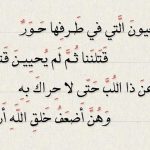 عيونَ الَّتي في طَرفِها حَوَرٌ
قَتَلنَنا ثُمَّ لَم يُحيينَ قَت
عنَ ذا اللُبَّ حَتّى لا حِراكَ بِهِ
وَهُنَّ أَضعَفُ خَلقِ اللَهِ أَر